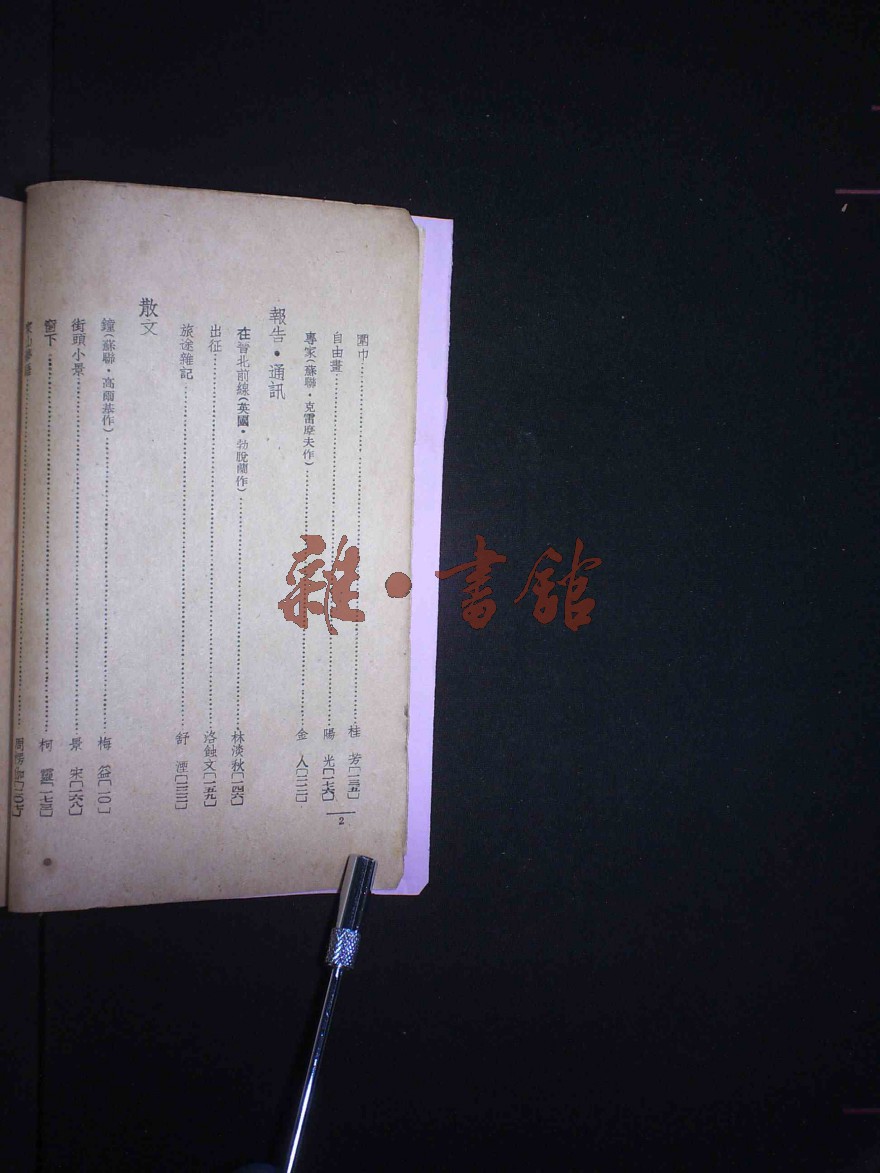 圍巾……桂 芳〔一三五〕
自由畫……陽 光〔一七六〕
專家(蘇聯•克雷摩夫作)……金 人〔二二〕
報告•通訊
在晉北前線(英國•勃脫蘭作)……林淡秋〔一四六〕
出征……洛蝕文〔一五九〕
旅途雜記……舒 湮〔三三〕
散文
鐘(蘇聯•高爾基作)……梅 益〔一〇〕
街頭小景……景 宋〔一六八〕
窗下……柯 靈〔一七三〕
2
雜•書館